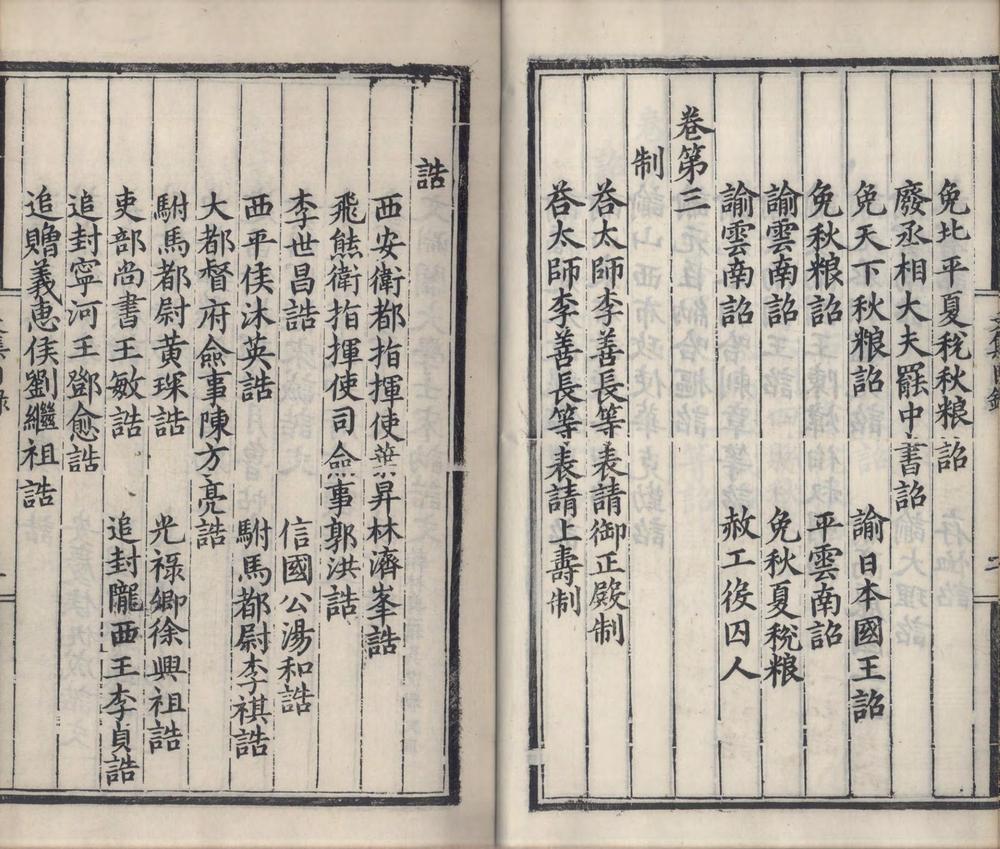 免北平夏稅秋粮詔
廢丞相大夫罷中書詔
免天下秋粮詔　諭日本國王詔
免秋粮詔　平雲南詔
諭雲南詔　免秋夏稅粮
諭雲南詔　赦工役囚人
卷第三
制
荅太師李善長等表請御正殿制
荅太師李善長等表請上壽制
誥
西安衛都指揮使葉昇林濟峯誥
飛熊衛指揮使司僉事郭洪誥
李世昌誥　信國公湯和誥
西平侯沐英誥　駙馬都尉李祺誥
大都督府僉事陳方亮誥
駙馬都尉黃琛誥　光祿卿徐興祖誥
吏部尚書王敏誥　追封隴西王李貞誥
追封寧河王鄧愈誥
追贈義惠侯劉繼祖誥